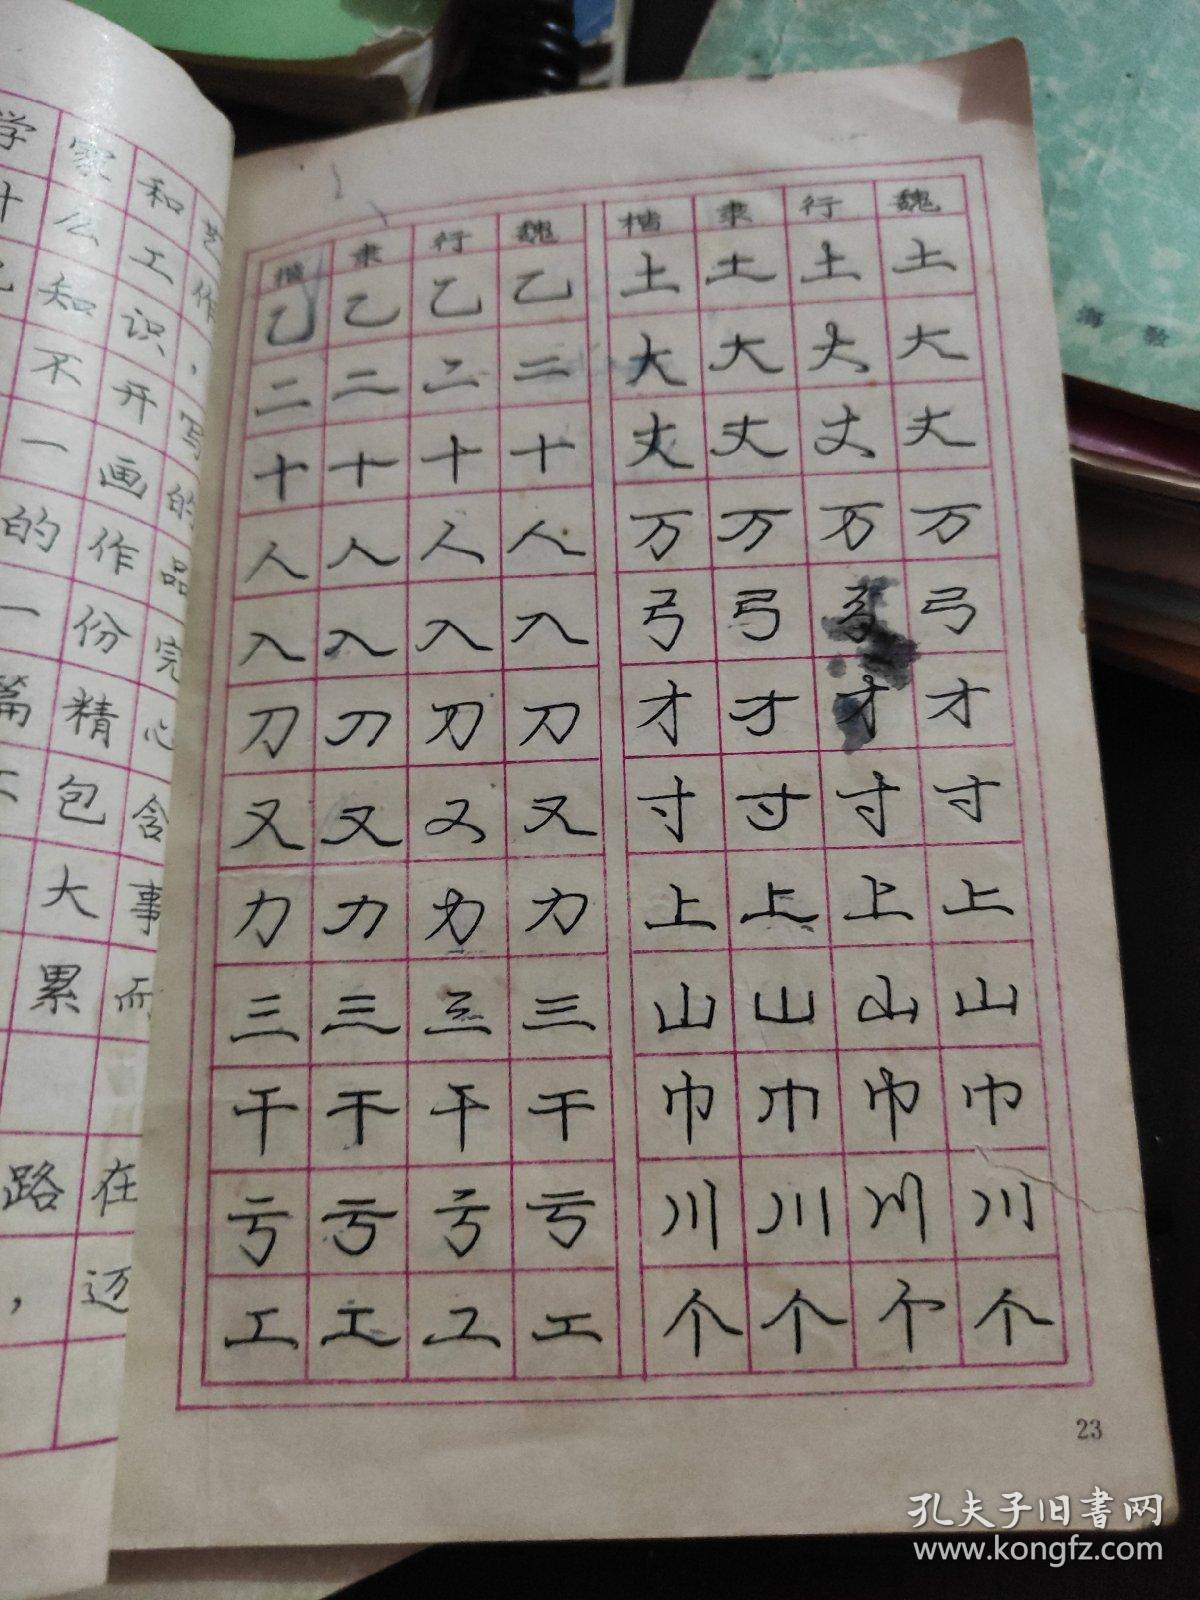 学家和艺
什么工作
己知识，
不开写
一画的
的作品
一份完
篇精心
不包含
大事
累而
路在
，迈
楷隶行魏 楷隶行魏
乙乙乙乙 土土土土
二二二二 大大大大
十十十十 丈丈丈丈
人人人人 万万万万
入入入入 弓弓弓弓
刀刀刀刀 才才才才
又又又又 寸寸寸寸
力力力力 上上上上
三三三三 山山山山
干干干干 巾巾巾巾
亏亏亏亏 川川川川
工工工工 个个个个
23
海教
孔夫子旧書网
www.kongfz.com